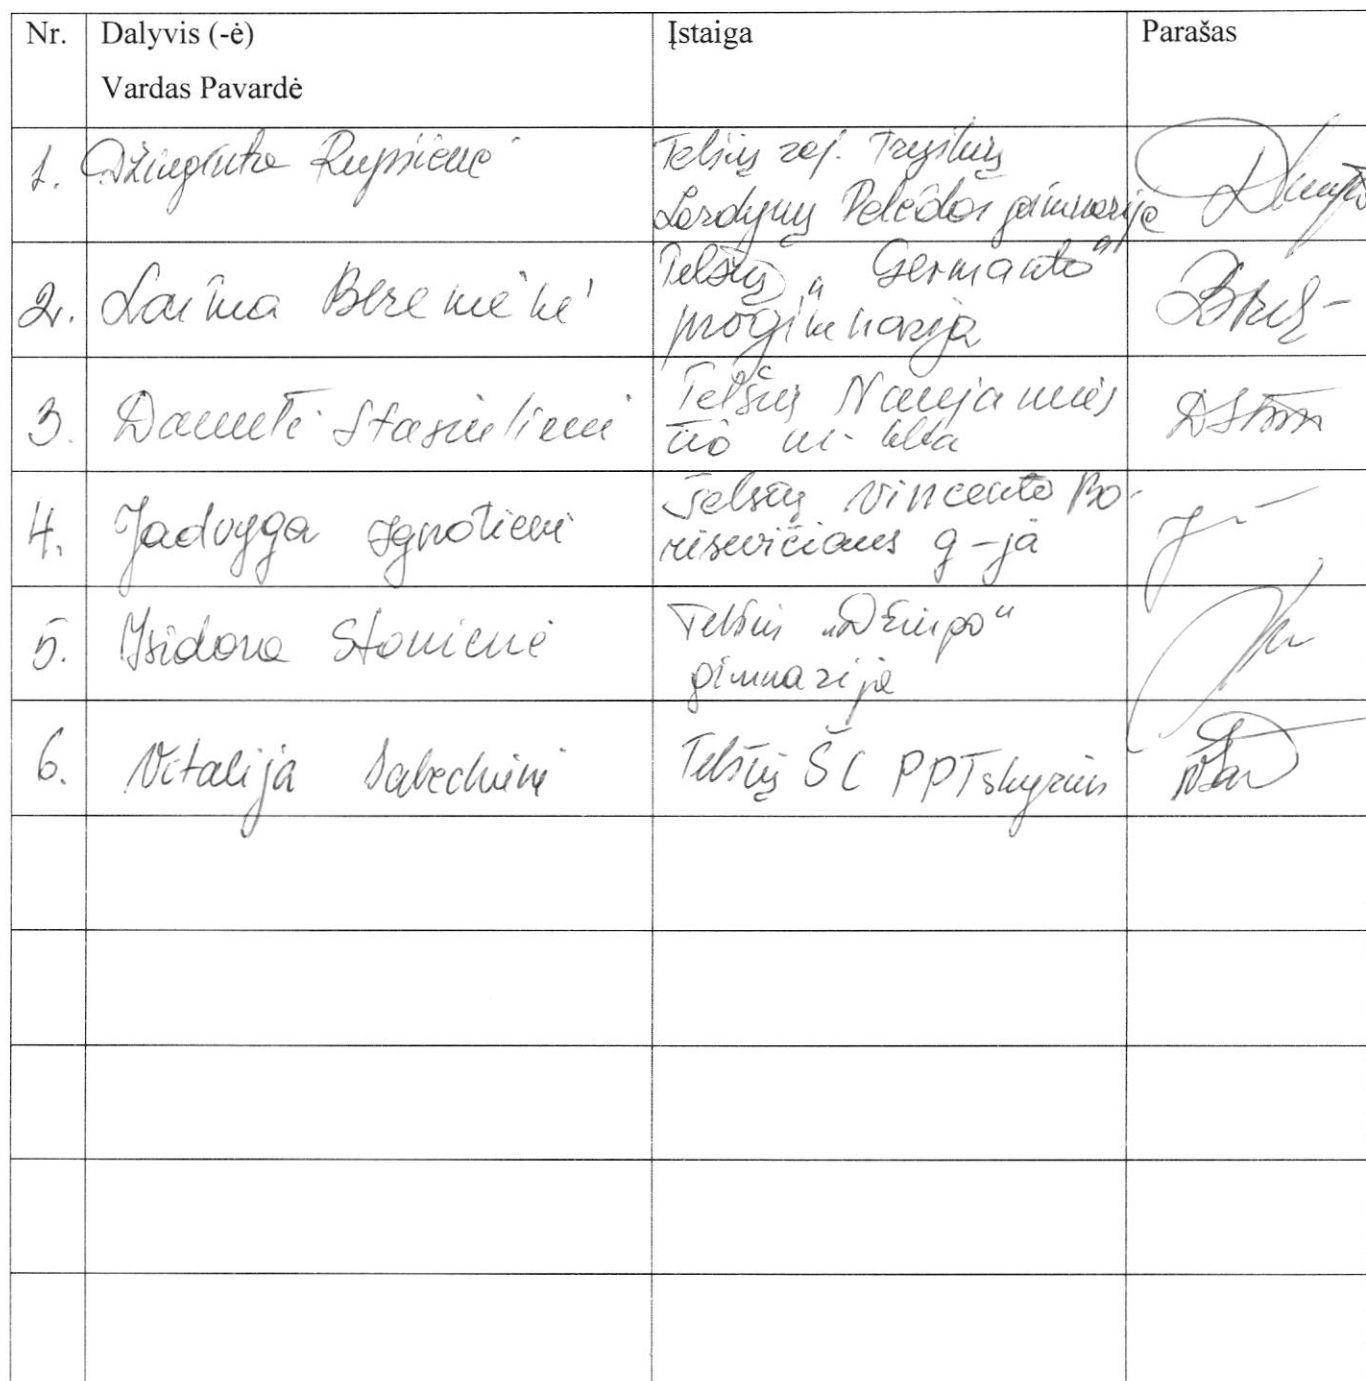 Nr. Dalyvis (-ė) Įstaiga Parašas
Vardas Pavardė
1. Džiugluta Rupšienė Telšių raj. Tryškių
Lazdynų Pelėdos gimnazija
2. Laima Beremėnė Telšių „Germanto"
progimnazija
3. Danutė Stasiulienė Telšių Naujamies
čio m-kla
4. Jadvyga Ignotienė Telšių Vincento Bo-
risevičiaus g-ja
5. Isidora Stonienė Telšių „Džiugo“
gimnazija
6. Vitalija Telšių ŠC PPT skyrius